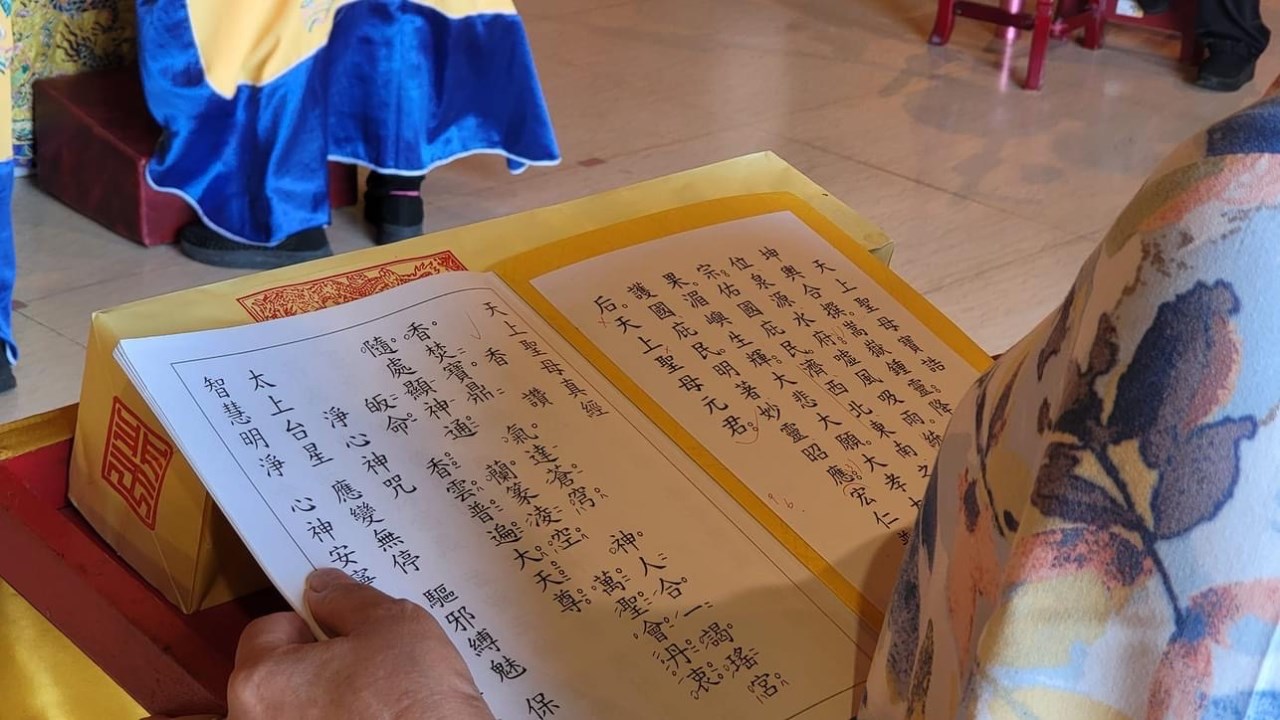 天上聖母寶誥
坤輿合撰。嵩嶽鍾靈。降
位泉源水府。噓風吸雨。統
宗。佑國庇民。濟西北東南之
果。湄嶼生輝。大悲大願。大孝大
護國庇民明著妙靈昭應。宏仁
后。天上聖母元君。
天上聖母真經
香 讚
香焚寶鼎。 氣達蒼穹。 神人合一謁瑤宮。
隨處顯神通。 蘭篆淩空。 萬聖會丹衷。
皈命。 香雲普遍大天尊。
淨心神咒
太上台星 應變無停 驅邪縛魅 保
智慧明淨 心神安寧